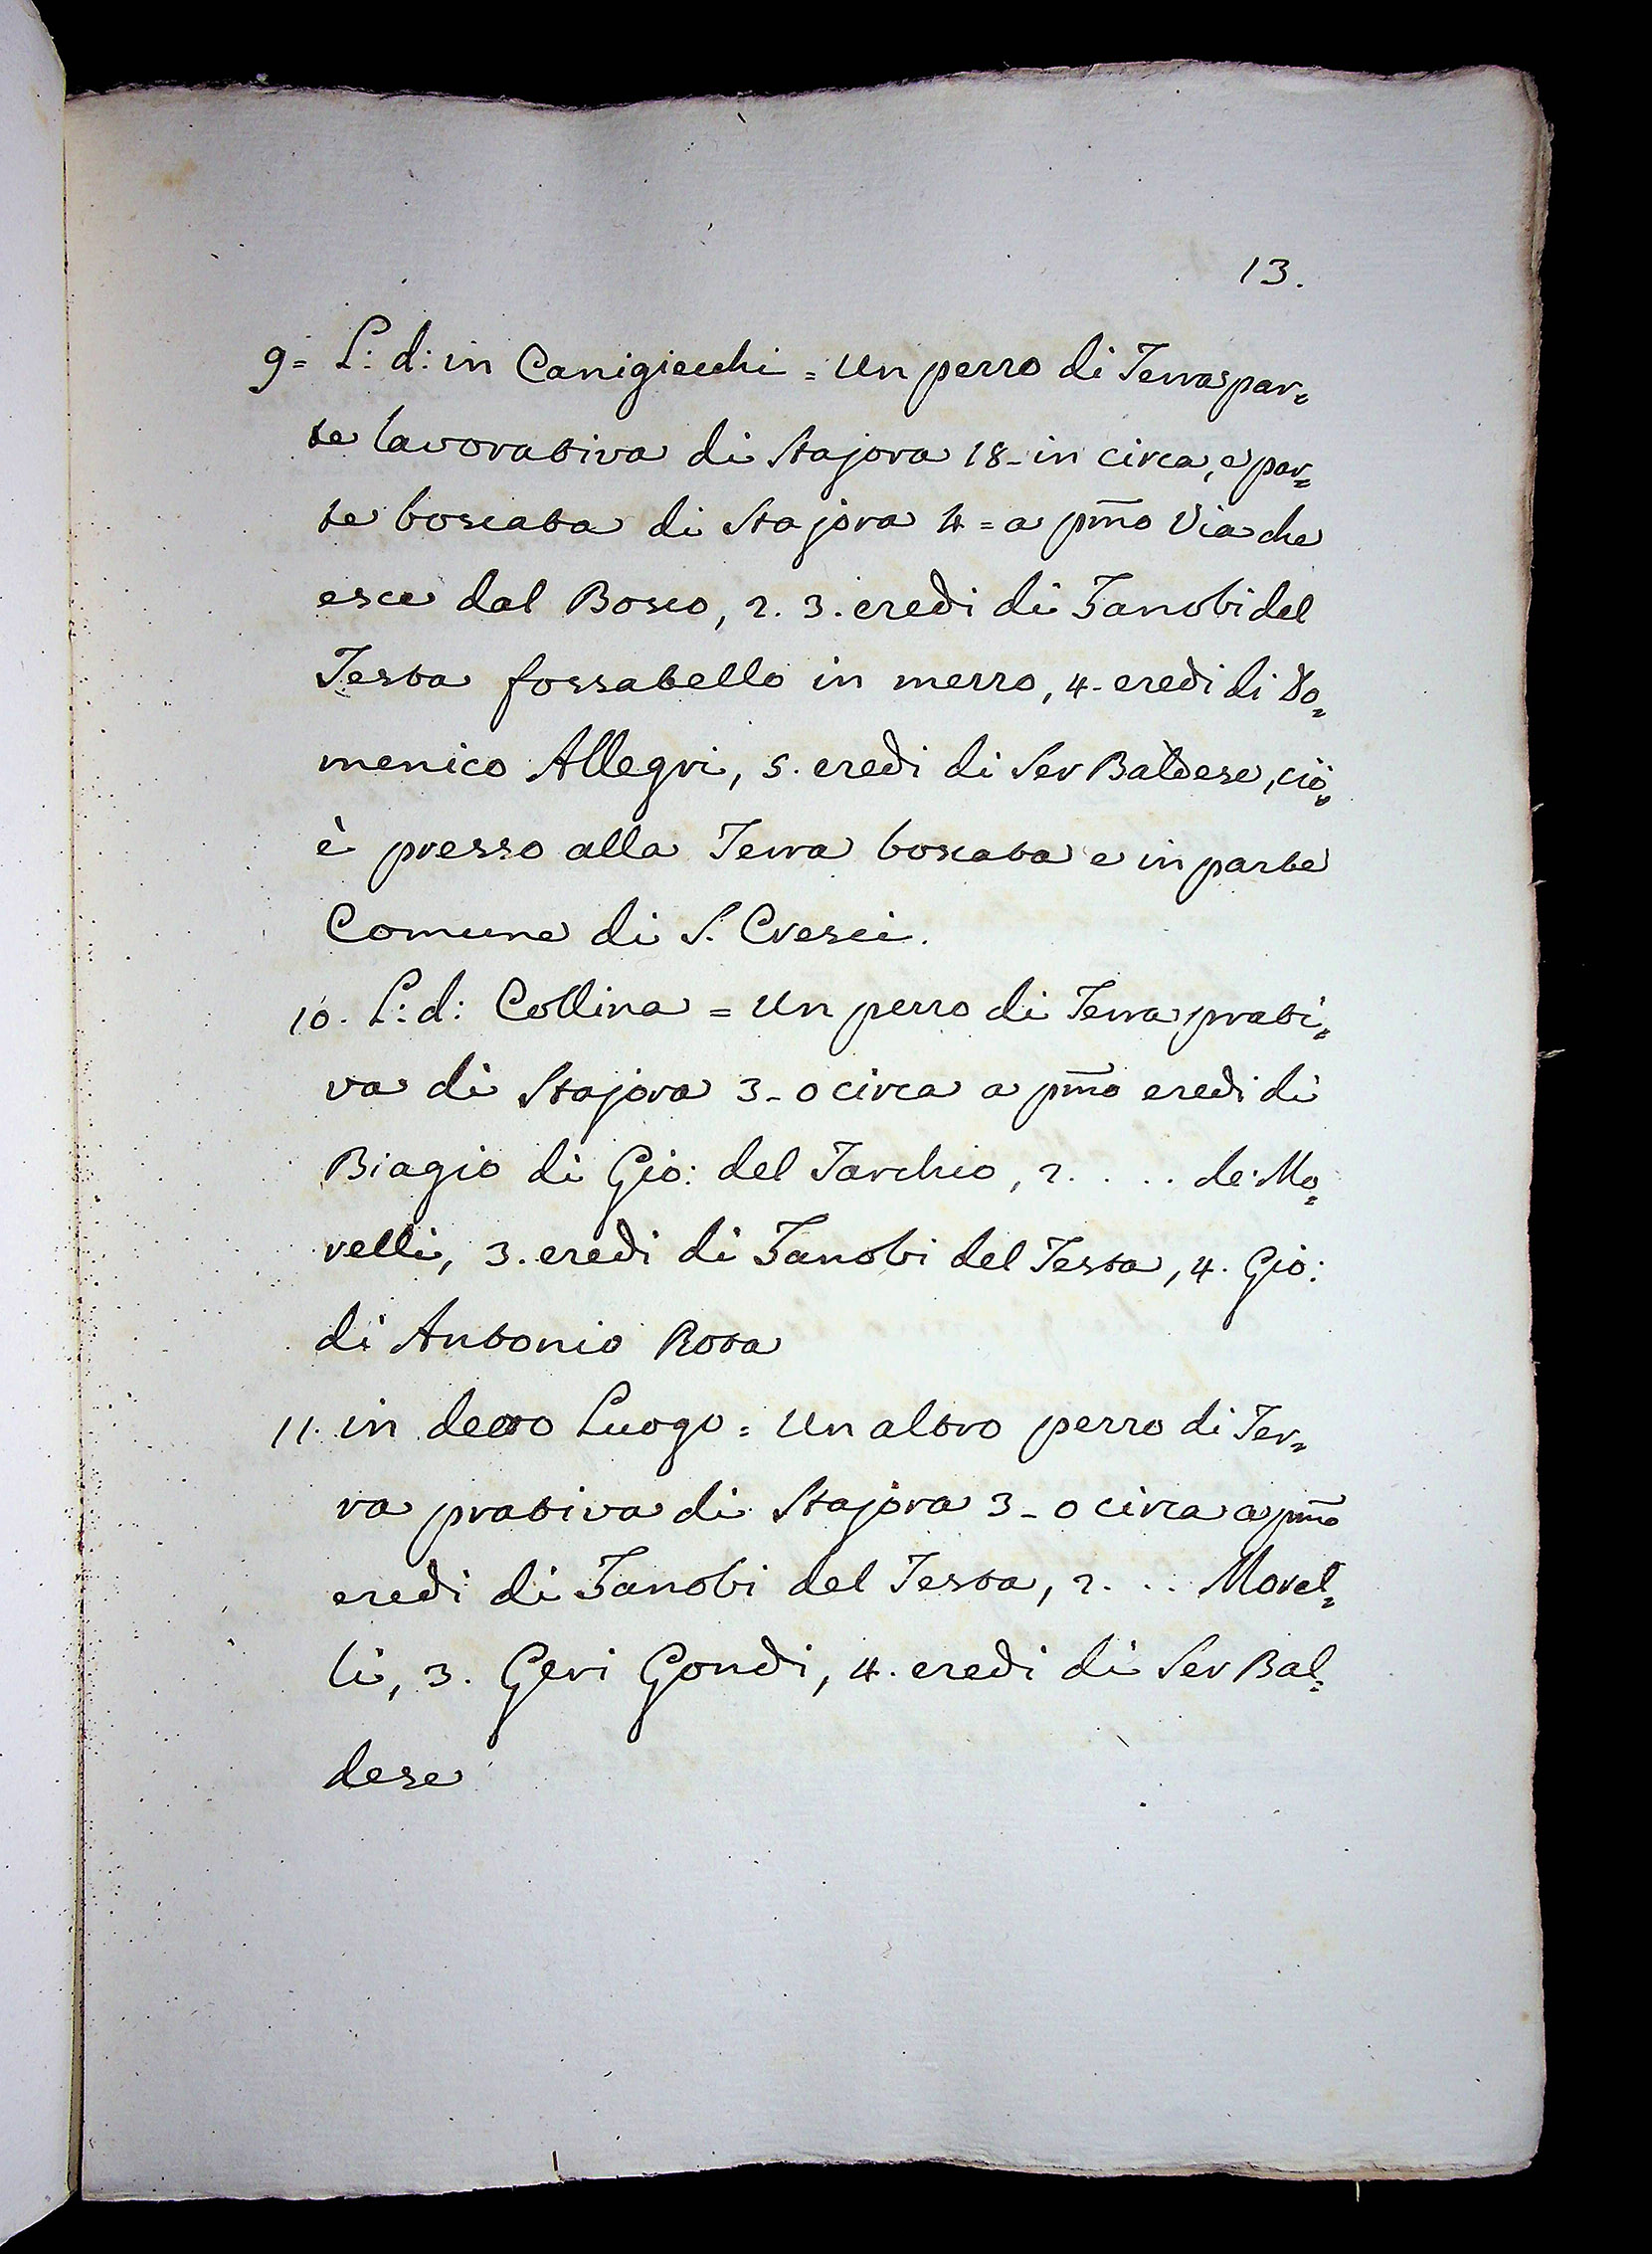 13.
9= L: d: in Canigiecchi = Un pezzo di Terra par=
te lavorativa di Stajora 18- in circa, e par=
te boscata di Stajora 4 = a pm̃o Via che
esce dal Bosco, 2. 3. eredi di Zanobi del
Testa fossatello in mezzo, 4. eredi di Do=
menico Allegri, 5. eredi di Ser Baldese, ciò=
è presso alla Terra boscata e in parte
Comune di S. Cresci.
10. L: d: Collina = Un pezzo di Terra prati=
va di Stajora 3-0 circa a pm̃o eredi di
Biagio di Gio: del Tarchio, 2. . . . de' Mo=
relli, 3. eredi di Zanobi del Testa, 4. Gio:
di Antonio Rota
11. in detto Luogo = Un altro pezzo di Ter=
ra prativa di Stajora 3-0 circa a pm̃o
eredi di Zanobi del Testa, 2. . . Morel=
li, 3. Geri Gondi, 4. eredi di Ser Bal=
dese